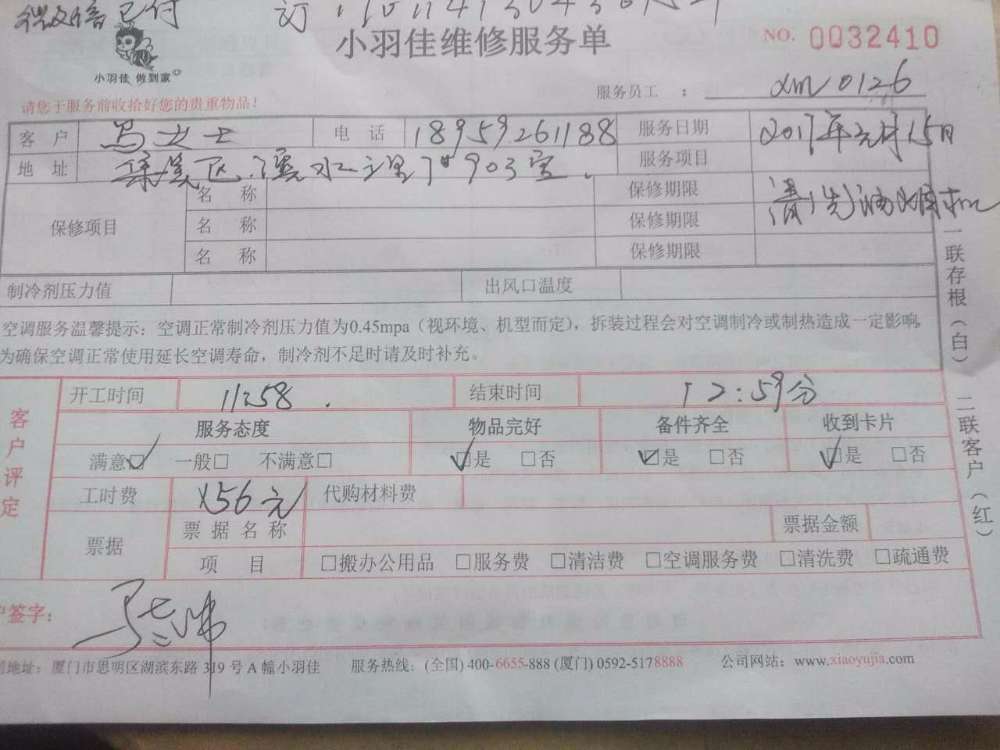 微信已付
小羽佳维修服务单
NO. 0032410
小羽佳 做到家
请您于服务前收拾好您的贵重物品!
服务员工 : xm0126
客户 马女士 电话 18959261188 服务日期 2017年元月15日
地址 集美区 水 里 903室. 服务项目 清洗油烟机
保修项目 名称 保修期限
名称 保修期限
名称 保修期限
制冷剂压力值 出风口温度
空调服务温馨提示：空调正常制冷剂压力值为0.45mpa（视环境、机型而定），拆装过程会对空调制冷或制热造成一定影响，
为确保空调正常使用延长空调寿命，制冷剂不足时请及时补充。
客户评定
开工时间 11:58. 结束时间 12:59分
服务态度 物品完好 备件齐全 收到卡片
满意☑ 一般□ 不满意□ ☑是 □否 ☑是 □否 ☑是 □否
工时费 156元 代购材料费
票据 票据名称 票据金额
项目 □搬办公用品 □服务费 □清洁费 □空调服务费 □清洗费 □疏通费
户签字:
地址：厦门市思明区湖滨东路 319 号 A 幢小羽佳 服务热线：(全国) 400-6655-888 (厦门) 0592-5178888 公司网站：www.xiaoyujia.com
一联存根（白） 二联客户（红）